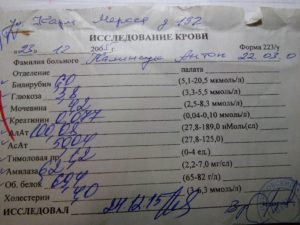 ул. Карл Маркса д 192
ИССЛЕДОВАНИЕ КРОВИ
25 12 200 Форма 223/у
Фамилия больного Антон 22.03.0
Отделение палата
Билирубин 60 (5,1-20,5 мкмоль/л)
Глюкоза 3,8 (3,3-5,5 ммоль/л)
Мочевина 4,2 (2,5-8,3 ммоль/л)
Креатинин 0,077 (0,04-0,10 ммоль/л)
АлАт 100,08 (27,8-189,0 нМоль(сл)
АсАт 500 (27,8-125,0)
Тимоловая пр. 1,2 (0-4 ед.)
Амилаза 62 (2,2-7,0 мг/сл)
Об. белок 60 (65-82 г/л)
Холестерин 4,0 (3-6,3 ммоль/л)
ИССЛЕДОВАЛ 24.12.15